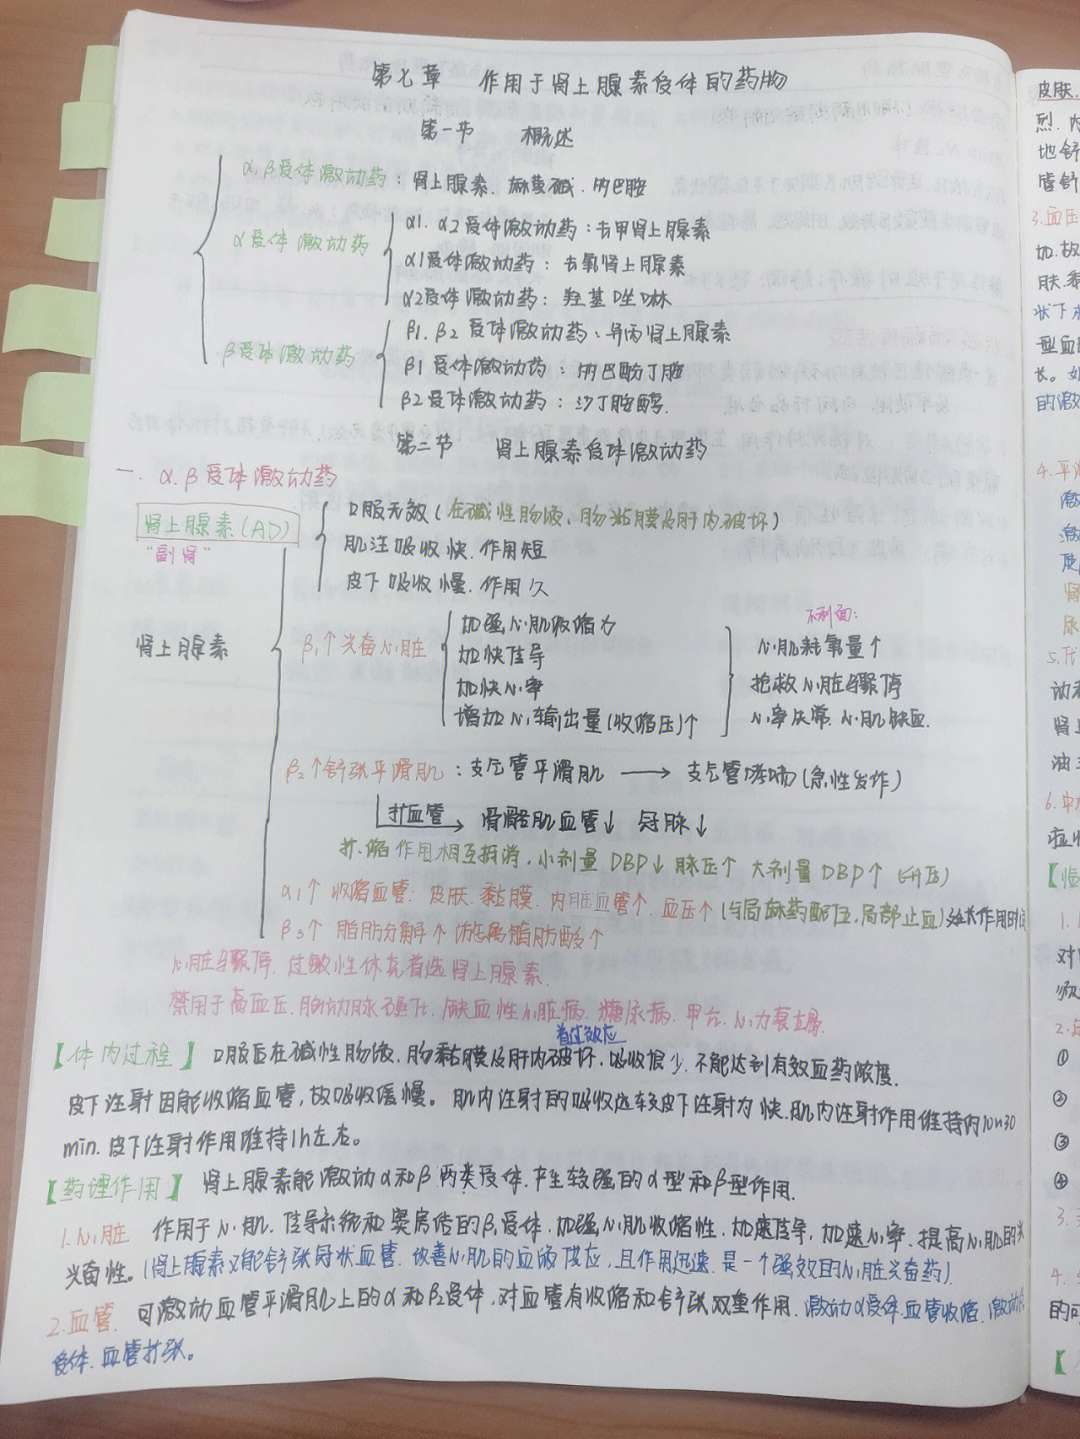 第七章 作用于肾上腺素受体的药物
第一节 概述
α、β受体激动药：肾上腺素、麻黄碱、多巴胺
α受体激动药
α1、α2受体激动药：去甲肾上腺素
α1受体激动药：去氧肾上腺素
α2受体激动药：羟基唑啉
β受体激动药
β1、β2受体激动药：异丙肾上腺素
β1受体激动药：多巴酚丁胺
β2受体激动药：沙丁胺醇
第二节 肾上腺素受体激动药
一、α、β受体激动药
肾上腺素(AD)
"副肾"
口服无效（在碱性肠液、肠黏膜及肝内破坏）
肌注吸收快、作用短
皮下吸收慢、作用久
肾上腺素
β₁↑兴奋心脏
加强心肌收缩力
加快传导
加快心率
增加心输出量(收缩压)↑
不利面:
心肌耗氧量↑
抢救心脏骤停
心率失常、心肌缺血
β₂↑舒张平滑肌：支气管平滑肌 → 支气管哮喘(急性发作)
扩血管 → 骨骼肌血管↓ 冠脉↓
扩、缩作用相互抵消，小剂量 DBP↓ 脉压↑ 大剂量 DBP↑（升压）
α₁↑ 收缩血管：皮肤、黏膜、内脏血管↑ 血压↑(与局麻药配伍，局部止血)延长作用时间
β₃↑ 脂肪分解↑ 游离脂肪酸↑
心脏骤停、过敏性休克首选肾上腺素
禁用于高血压、脑动脉硬化、缺血性心脏病、糖尿病、甲亢、心力衰竭
首过效应
【体内过程】口服后在碱性肠液、肠黏膜及肝内破坏，吸收很少，不能达到有效血药浓度。
皮下注射因能收缩血管，故吸收缓慢。肌内注射的吸收远较皮下注射为快，肌内注射作用维持约10~30
min，皮下注射作用维持1h左右。
【药理作用】肾上腺素能激动α和β两类受体，产生较强的α型和β型作用。
1.心脏 作用于心肌、传导系统和窦房结的β₁受体，加强心肌收缩性，加速传导，加速心率，提高心肌的兴
兴奋性。(肾上腺素又能舒张冠状血管，改善心肌的血液供应，且作用迅速，是一个强效的心脏兴奋药)
2.血管 可激动血管平滑肌上的α和β₂受体，对血管有收缩和舒张双重作用，激动α受体，血管收缩，激动
受体，血管扩张。
皮肤、
烈，内
地舒
3.血压
加，故
状下
型血
长。如
的激
4.平滑
激
激
肾
5.代
动
肾上
油
6.中
【临
1.
对
2.
①
②
③
④
3.
4.
的可
【